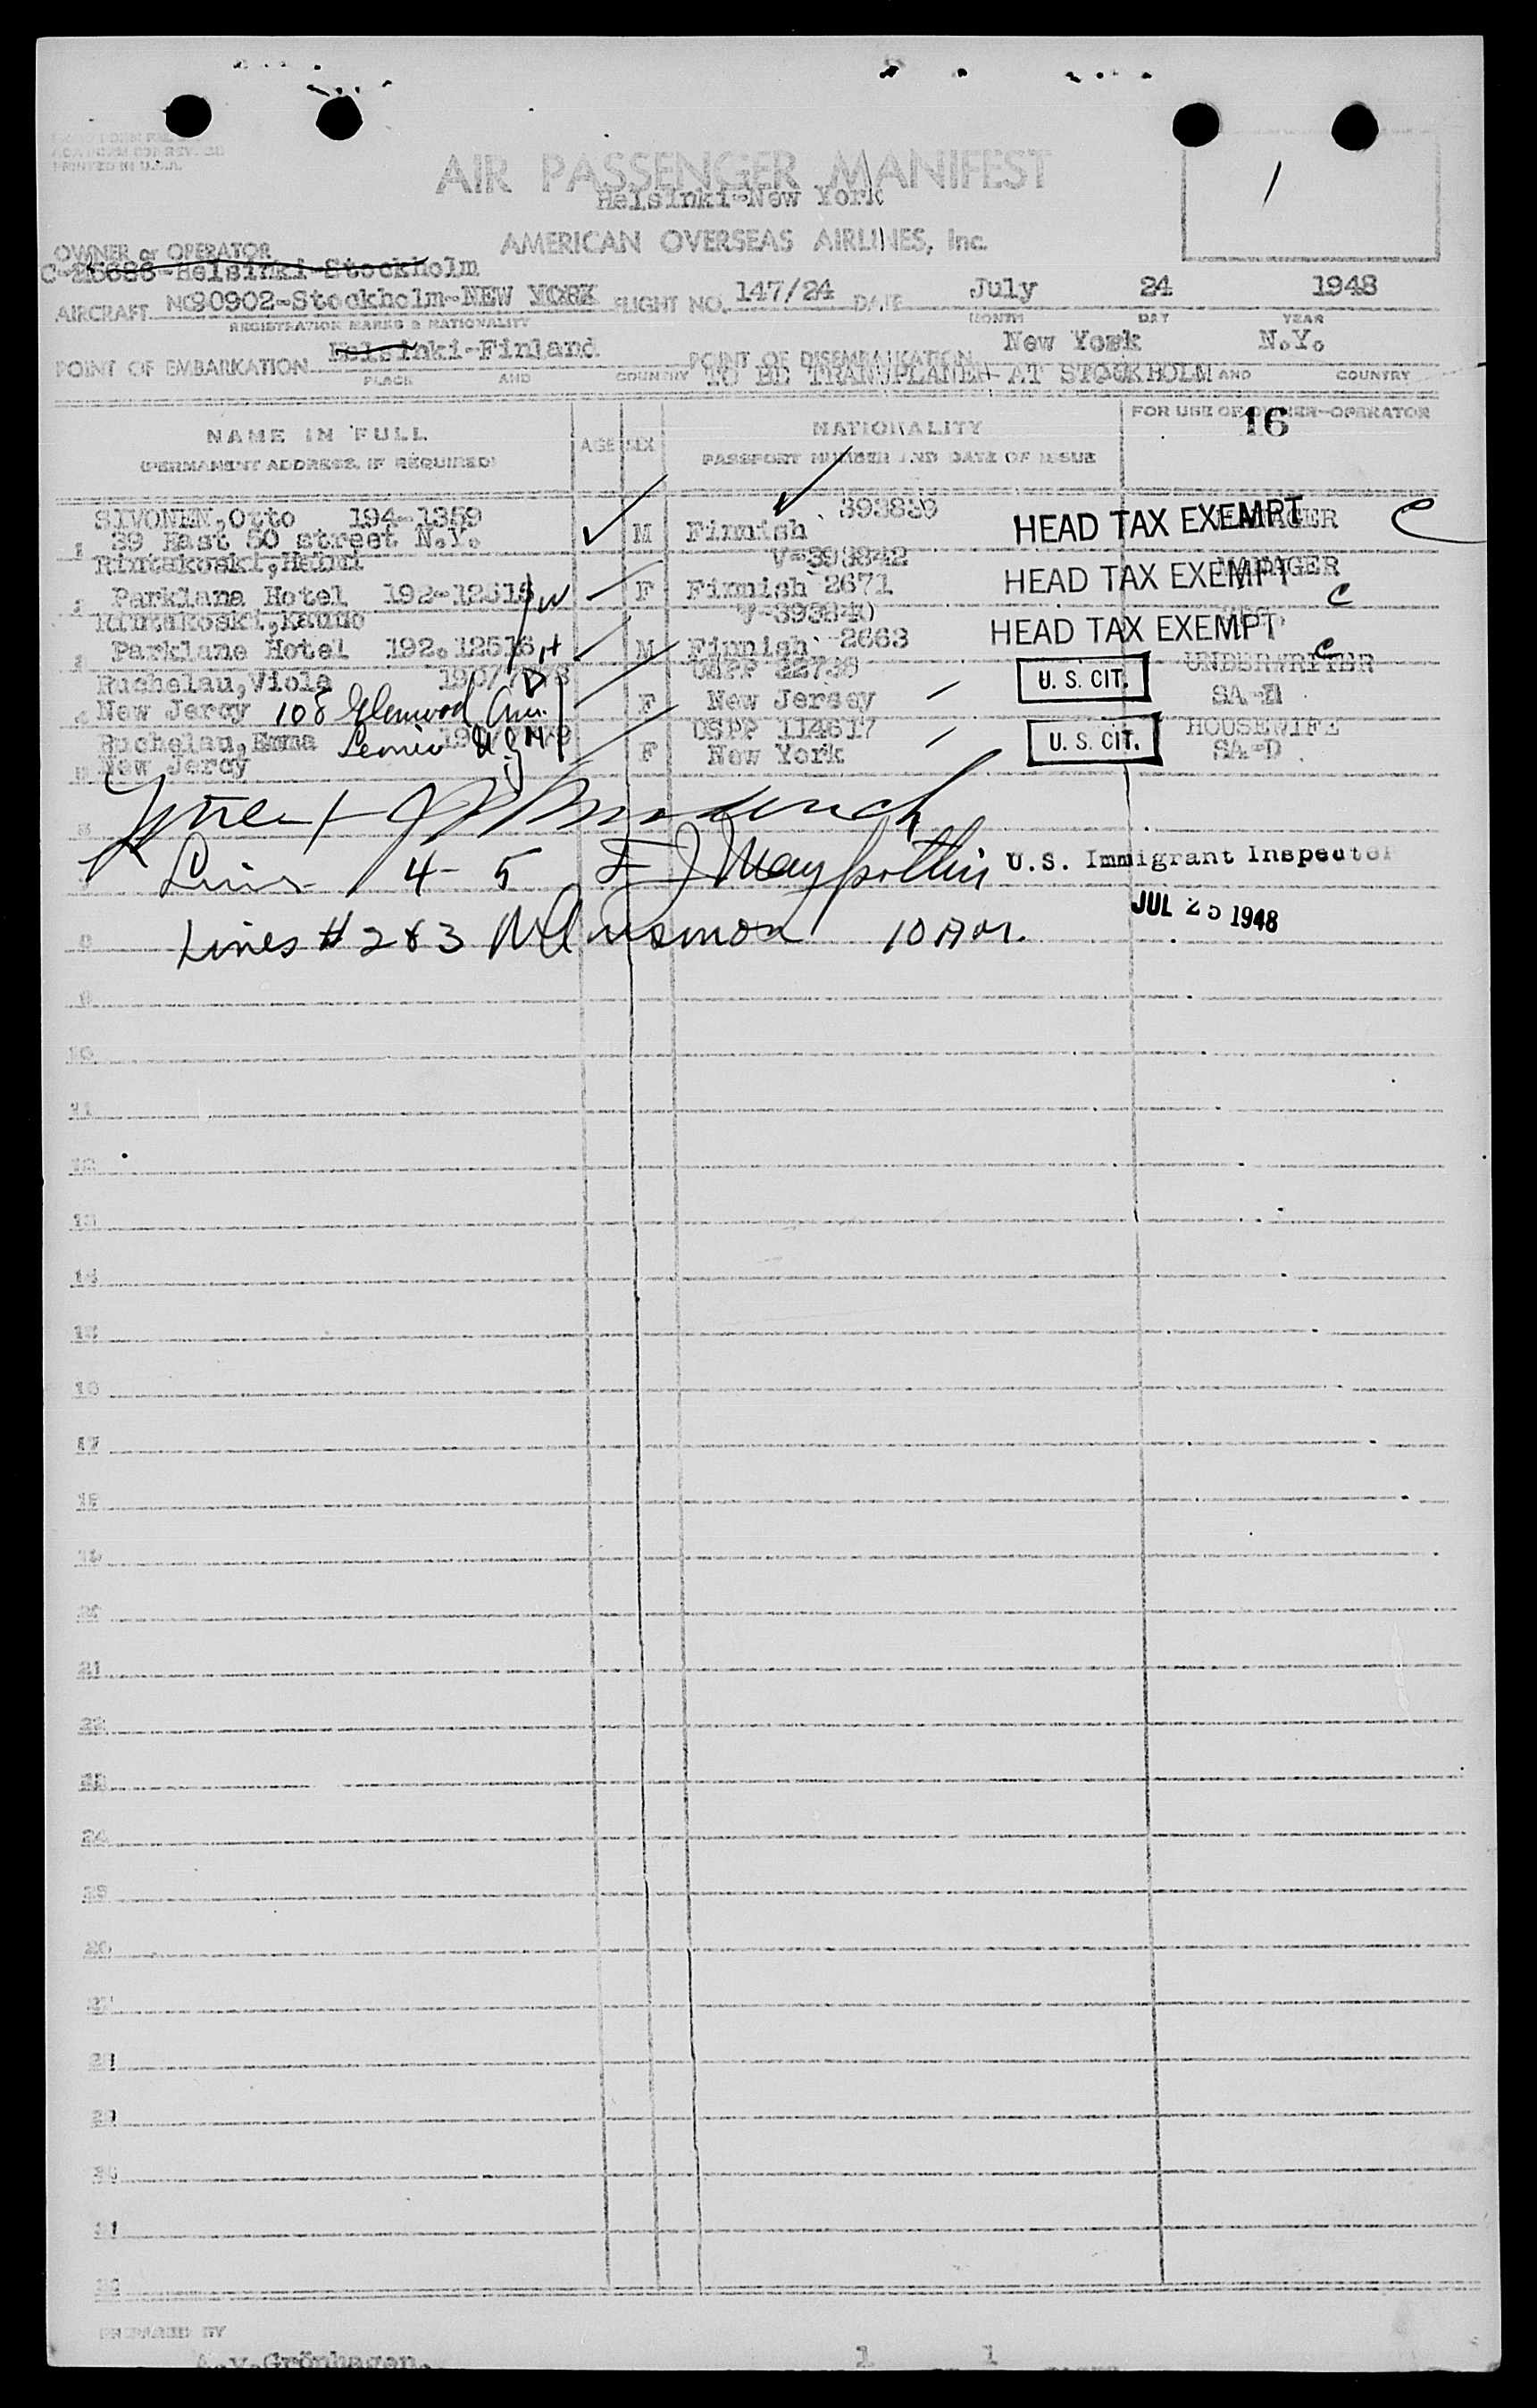 PRINTED IN U.S.A.
1
AIR PASSENGER MANIFEST
Helsinki-New York
AMERICAN OVERSEAS AIRLINES, Inc.
OWNER or OPERATOR
Helsinki-Stockholm
AIRCRAFT NC90902-Stockholm-NEW YORK FLIGHT NO. 147/24 DATE July 24 1948
REGISTRATION MARKS & NATIONALITY MONTH DAY YEAR
POINT OF EMBARKATION Helsinki-Finland POINT OF DISEMBARKATION New York N.Y.
PLACE AND COUNTRY TO BE TRANSPLANED AT STOCKHOLM AND COUNTRY
NAME IN FULL AGE SEX NATIONALITY FOR USE OF OWNER-OPERATOR
16
(PERMANENT ADDRESS, IF REQUIRED) PASSPORT NUMBER AND DATE OF ISSUE
SIVONEN, Otto 194-1359 M Finnish 393836 HEAD TAX EXEMPT MANAGER C
1 39 East 50 street N.Y.
Rintakoski, Heimi V-393842
2 Parklane Hotel 192-12515 W F Finnish 2671 HEAD TAX EXEMPT MANAGER C
Rintakoski, Kauno V-393840 HEAD TAX EXEMPT
Parklane Hotel 192.12516 H M Finnish 2663 C
Ruchelau, Viola USPP 22736 U. S. CIT. UNDERWRITER
New Jercy 108 Glenwood Ave. F New Jersey SA-D
Ruchelau, Emma Leonia N.J. USPP 114617 U. S. CIT. HOUSEWIFE
5 New Jercy F New York SA-D
Lines 4-5 U.S. Immigrant Inspector
JUL 25 1948
Lines # 2 & 3 10 A.M.
9
10
11
12
13
14
15
16
17
18
19
20
21
22
23
24
25
26
27
28
29
30
31
32
PREPARED BY
A.v.Grönhagen. 1 1